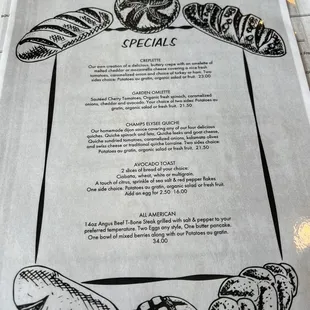 SPECIALS
CREPLETTE
Our own creation of a delicious, buttery crepe with an omelette of
melted cheddar or mozzarella cheese covering a nice fresh
tomatoes, caramelized onions and choice of turkey or ham. Two
sides choice: Potatoes au gratin, organic salad or fruit. 22.00
GARDEN OMLETTE
Sautéed Cherry Tomatoes, Organic fresh spinach, caramelized
onions, cheddar and avocado. Your choice of two sides: Potatoes au
gratin, organic salad or fresh fruit. 21.50
CHAMPS ELYSEE QUICHE
Our homemade dijon slice covering any of our four delicious
quiches. Quiche spinach and feta, Quiche leeks and goat cheese,
Quiche sundried tomatoes, caramelized onions, kalamata olives
and swiss cheese or traditional quiche Lorraine. Two sides choice:
Potatoes au gratin, organic salad or fresh fruit. 21.50
AVOCADO TOAST
2 slices of bread of your choice:
Ciabatta, wheat, white or multigrain.
A touch of citrus, sprinkle of sea salt & red pepper flakes
One side choice: Potatoes au gratin, organic salad or fresh fruit.
Add an egg for 2.50 16.00
ALL AMERICAN
14oz Angus Beef T-Bone Steak grilled with salt & pepper to your
preferred temperature. Two Eggs any style, One butter pancake.
One bowl of mixed berries along with our Potatoes au gratin.
34.00